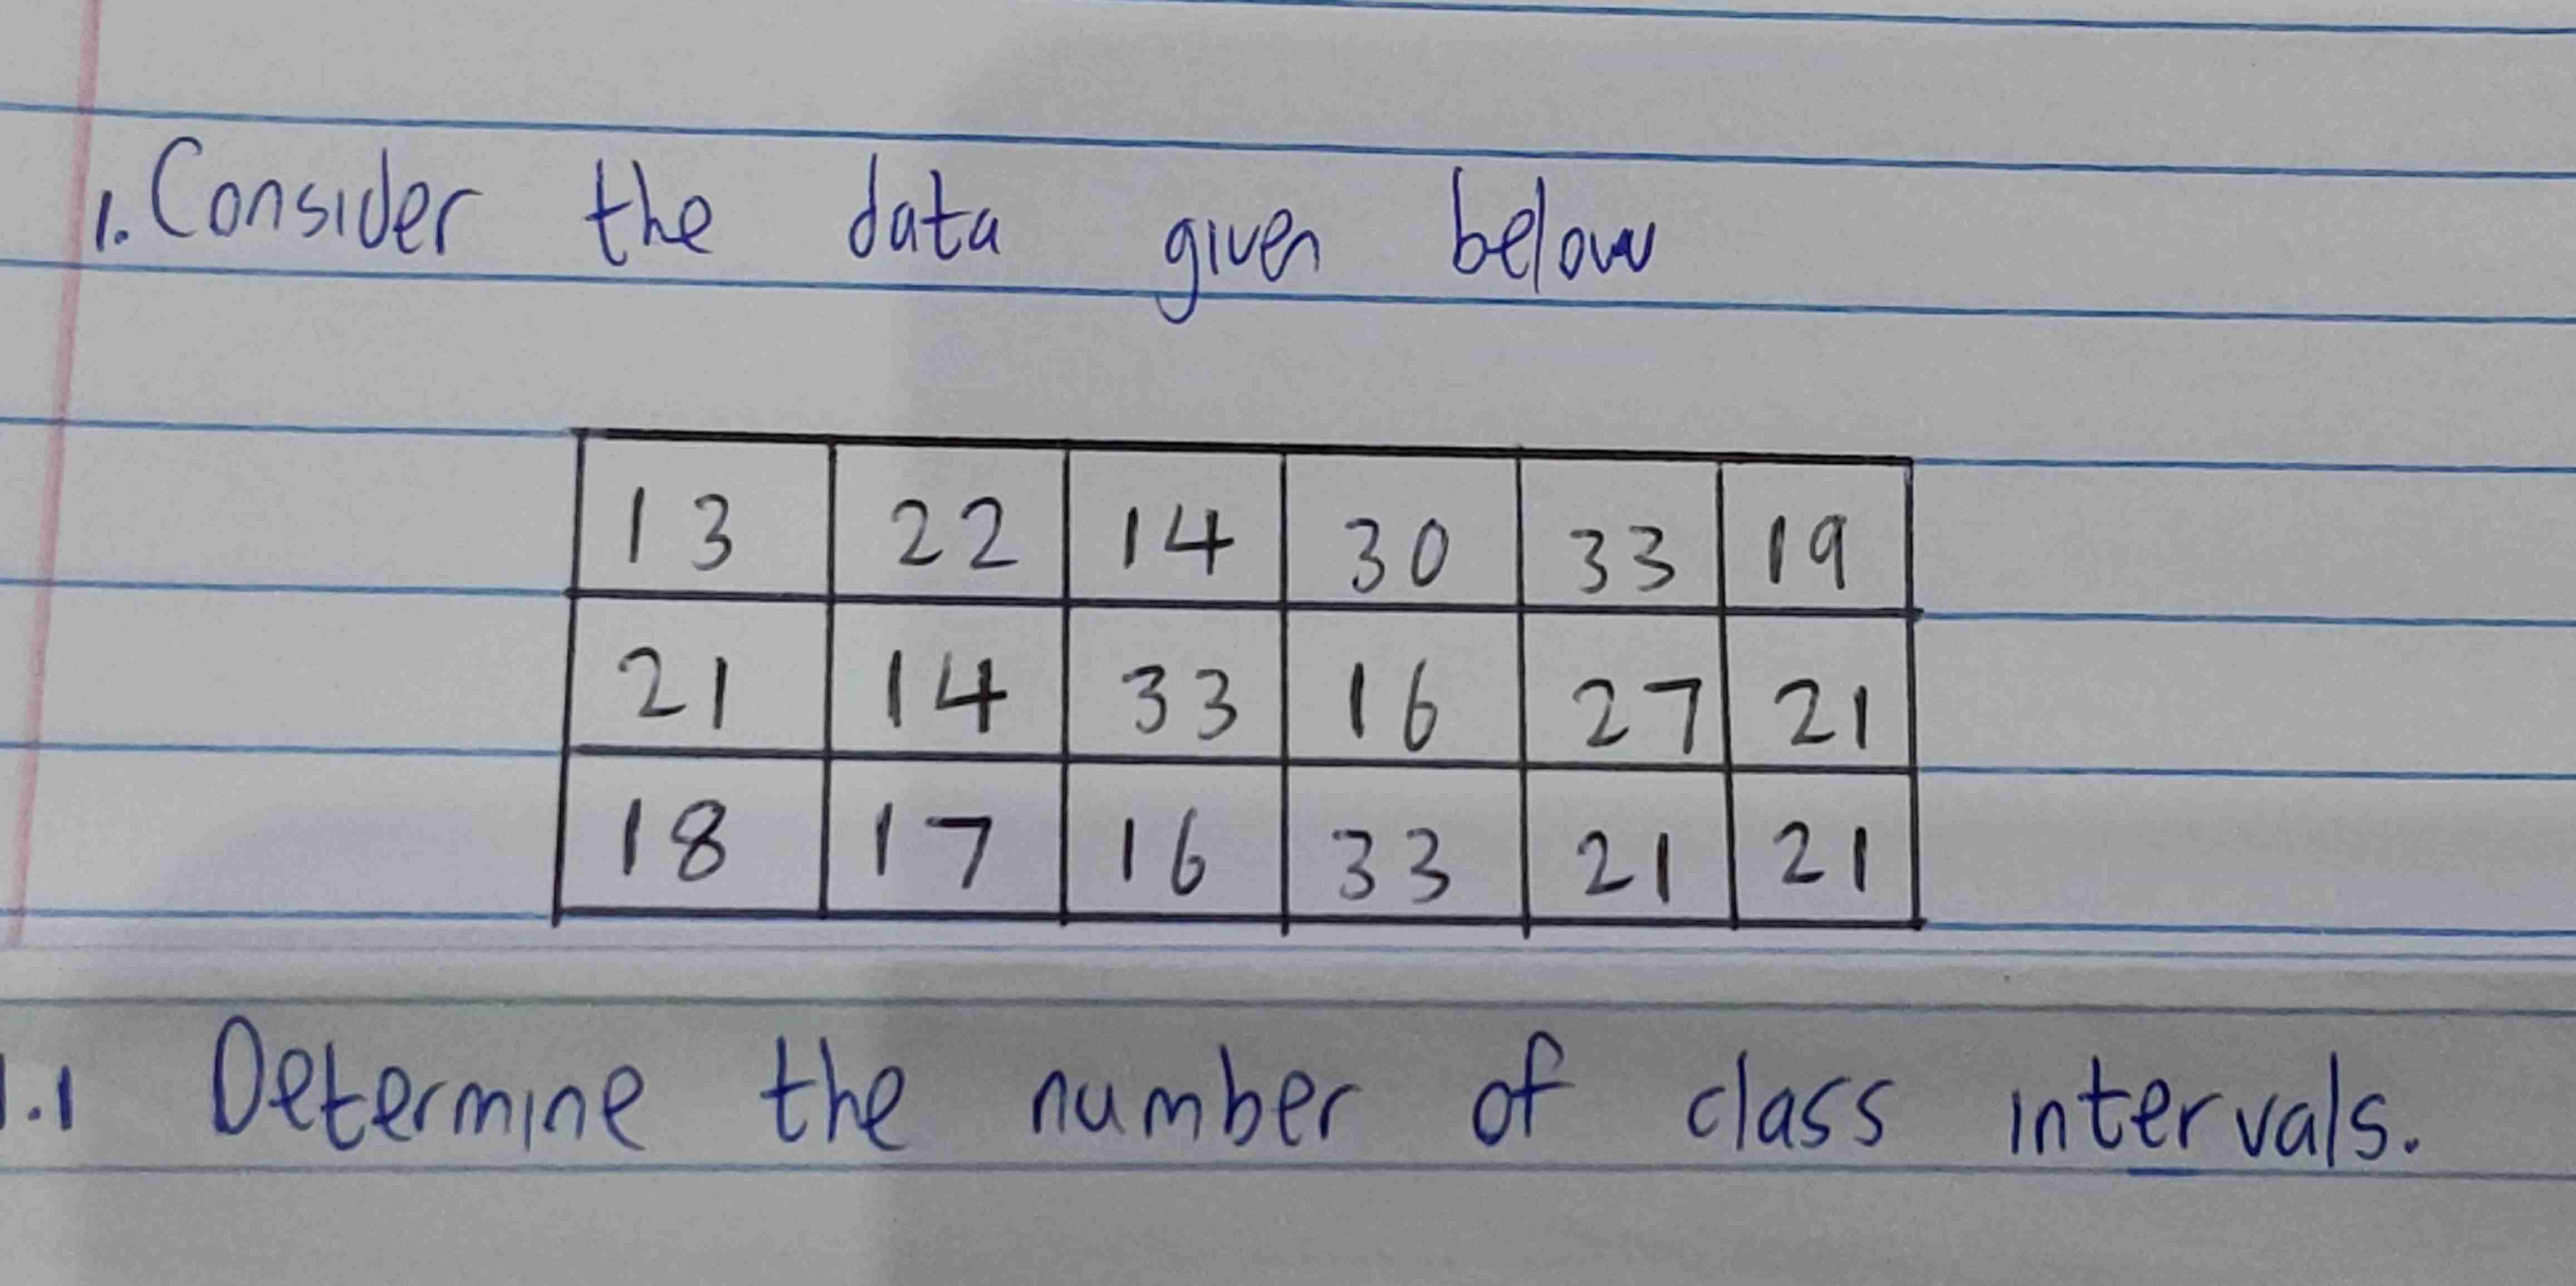 1. Consider the data given below
13 22 14 30 33 19
21 14 33 16 27 21
18 17 16 33 21 21
1.1 Determine the number of class intervals.